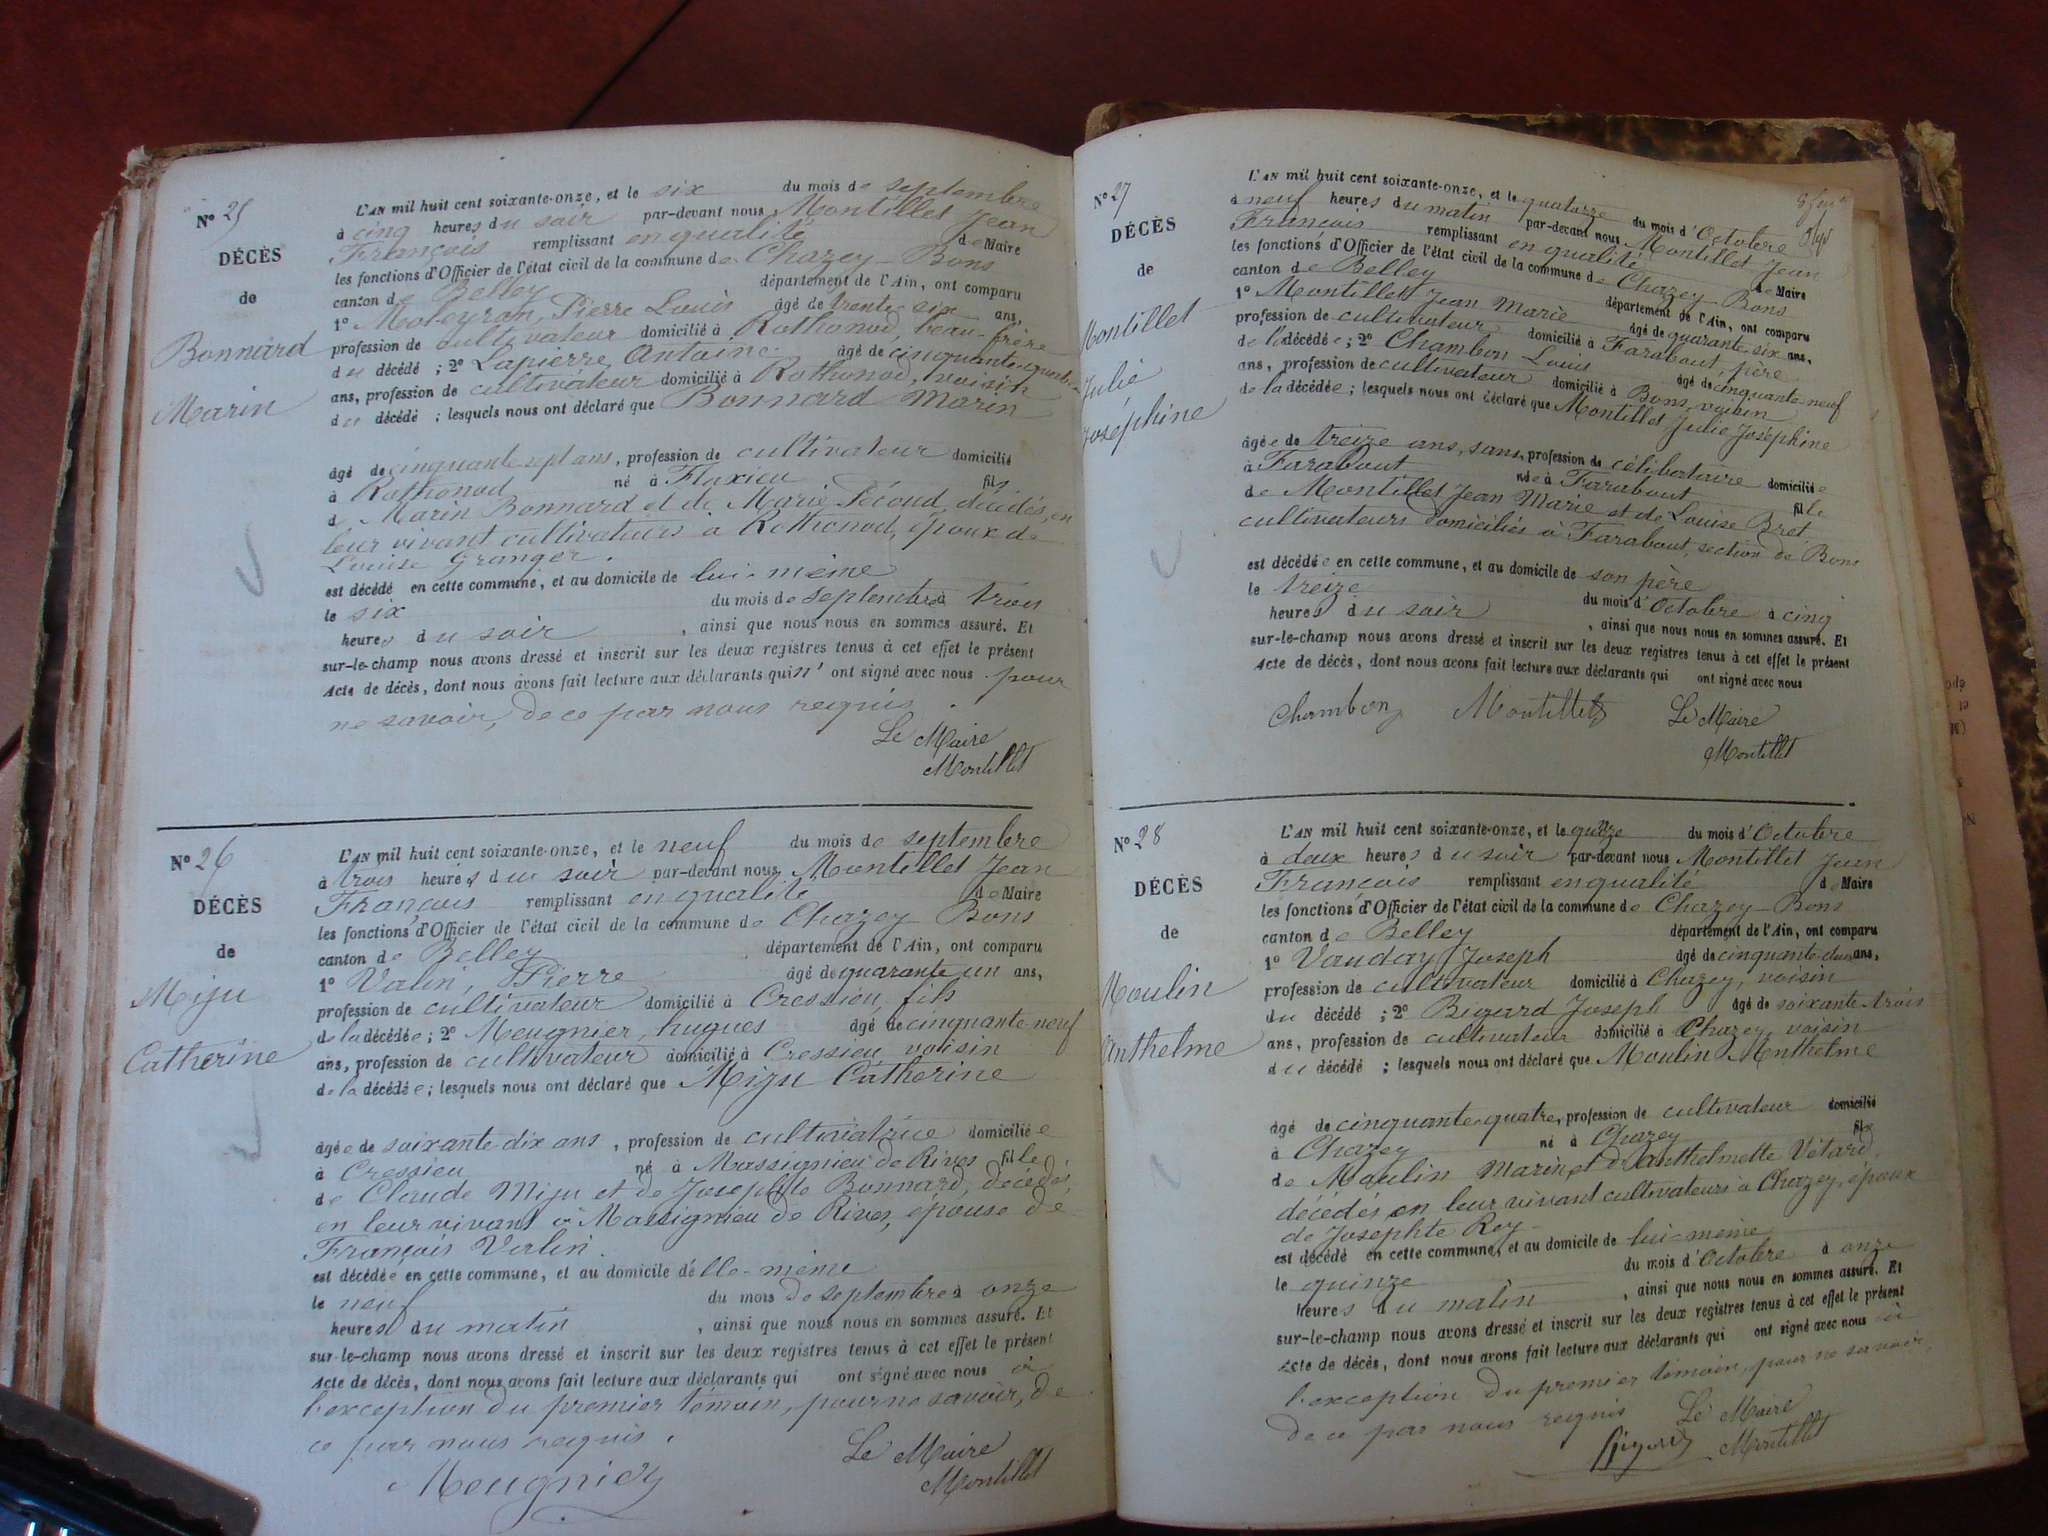 Nº 25
DÉCÈS
de
Bonnard
Marin
L'AN mil huit cent soixante-onze, et le six du mois de septembre
à cinq heures du soir par-devant nous Montillet Jean
François remplissant en qualité de Maire
les fonctions d'Officier de l'état civil de la commune de Chazey-Bons
canton de Belley département de l'Ain, ont comparu
1º Moleyron, Pierre Louis âgé de trente six ans,
profession de cultivateur domicilié à Rothonod, beau-frère
du décédé ; 2º Lapierre, Antoine âgé de cinquante-quatre
ans, profession de cultivateur domicilié à Rothonod, voisin
du décédé ; lesquels nous ont déclaré que Bonnard Marin
âgé de cinquante sept ans, profession de cultivateur domicilié
à Rothonod né à Flaxieu fils
de Marin Bonnard et de Marie Pécoud, décédés, en
leur vivant cultivateurs à Rothonod, époux de
Louise Granger.
est décédé en cette commune, et au domicile de lui-même
le six du mois de septembre à trois
heures du soir, ainsi que nous nous en sommes assuré. Et
sur-le-champ nous avons dressé et inscrit sur les deux registres tenus à cet effet le présent
Acte de décès, dont nous avons fait lecture aux déclarants qui n'ont signé avec nous pour
ne savoir, de ce par nous requis.
Le Maire
Montillet
Nº 26
DÉCÈS
de
Miju
Catherine
L'AN mil huit cent soixante-onze, et le neuf du mois de septembre
à trois heures du soir par-devant nous Montillet Jean
François remplissant en qualité de Maire
les fonctions d'Officier de l'état civil de la commune de Chazey Bons
canton de Belley département de l'Ain, ont comparu
1º Verlin, Pierre âgé de quarante un ans,
profession de cultivateur domicilié à Cressieu, fils
de la décédée ; 2º Meugnier, hugues âgé de cinquante neuf
ans, profession de cultivateur domicilié à Cressieu, voisin
de la décédée ; lesquels nous ont déclaré que Miju Catherine
âgée de soixante dix ans, profession de cultivatrice domiciliée
à Cressieu né à Massignieu de Rives fille
de Claude Miju et de Josephte Bonnard, décédés,
en leur vivant à Massignieu de Rives, épouse de
François Verlin.
est décédée en cette commune, et au domicile d'elle-même
le neuf du mois de septembre à onze
heures du matin, ainsi que nous nous en sommes assuré. Et
sur-le-champ nous avons dressé et inscrit sur les deux registres tenus à cet effet le présent
Acte de décès, dont nous avons fait lecture aux déclarants qui ont signé avec nous à
l'exception du premier témoin, pour ne savoir, de
ce par nous requis.
Le Maire
Meugnier
Montillet
Nº 27
DÉCÈS
de
Montillet
Julie
Joséphine
L'AN mil huit cent soixante-onze, et le quatorze du mois d'Octobre
à neuf heures du matin par-devant nous Montillet Jean
François remplissant en qualité de Maire
les fonctions d'Officier de l'état civil de la commune de Chazey-Bons
canton de Belley département de l'Ain, ont comparu
1º Montillet Jean Marie âgé de quarante-six ans,
profession de cultivateur domicilié à Farabout, père
de la décédée ; 2º Chambon Louis âgé de cinquante-neuf
ans, profession de cultivateur domicilié à Bons, voisin
de la décédée ; lesquels nous ont déclaré que Montillet Julie Joséphine
âgée de treize ans, sans profession de célibataire domiciliée
à Farabout née à Farabout fille
de Montillet Jean Marie et de Louise Bret
cultivateurs domiciliés à Farabout, section de Bons
est décédée en cette commune, et au domicile de son père
le treize du mois d'Octobre à cinq
heures du soir, ainsi que nous nous en sommes assuré. Et
sur-le-champ nous avons dressé et inscrit sur les deux registres tenus à cet effet le présent
Acte de décès, dont nous avons fait lecture aux déclarants qui ont signé avec nous
Chambon Montillet Le Maire
Montillet
Nº 28
DÉCÈS
de
Moulin
Anthelme
L'AN mil huit cent soixante-onze, et le quinze du mois d'Octobre
à deux heures du soir par-devant nous Montillet Jean
François remplissant en qualité de Maire
les fonctions d'Officier de l'état civil de la commune de Chazey-Bons
canton de Belley département de l'Ain, ont comparu
1º Vauday Joseph âgé de cinquante-deux ans,
profession de cultivateur domicilié à Chazey, voisin
du décédé ; 2º Bugard Joseph âgé de soixante-trois
ans, profession de cultivateur domicilié à Chazey, voisin
du décédé ; lesquels nous ont déclaré que Moulin Anthelme
âgé de cinquante-quatre, profession de cultivateur domicilié
à Chazey né à Chazey fils
de Moulin Marin, et d'Anthelmette Vétard,
décédés, en leur vivant cultivateurs à Chazey, époux
de Josephte Rey
est décédé en cette commune, et au domicile de lui-même
le quinze du mois d'Octobre à onze
heures du matin, ainsi que nous nous en sommes assuré. Et
sur-le-champ nous avons dressé et inscrit sur les deux registres tenus à cet effet le présent
Acte de décès, dont nous avons fait lecture aux déclarants qui ont signé avec nous à
l'exception du premier témoin, pour ne savoir,
de ce par nous requis Le Maire
Montillet